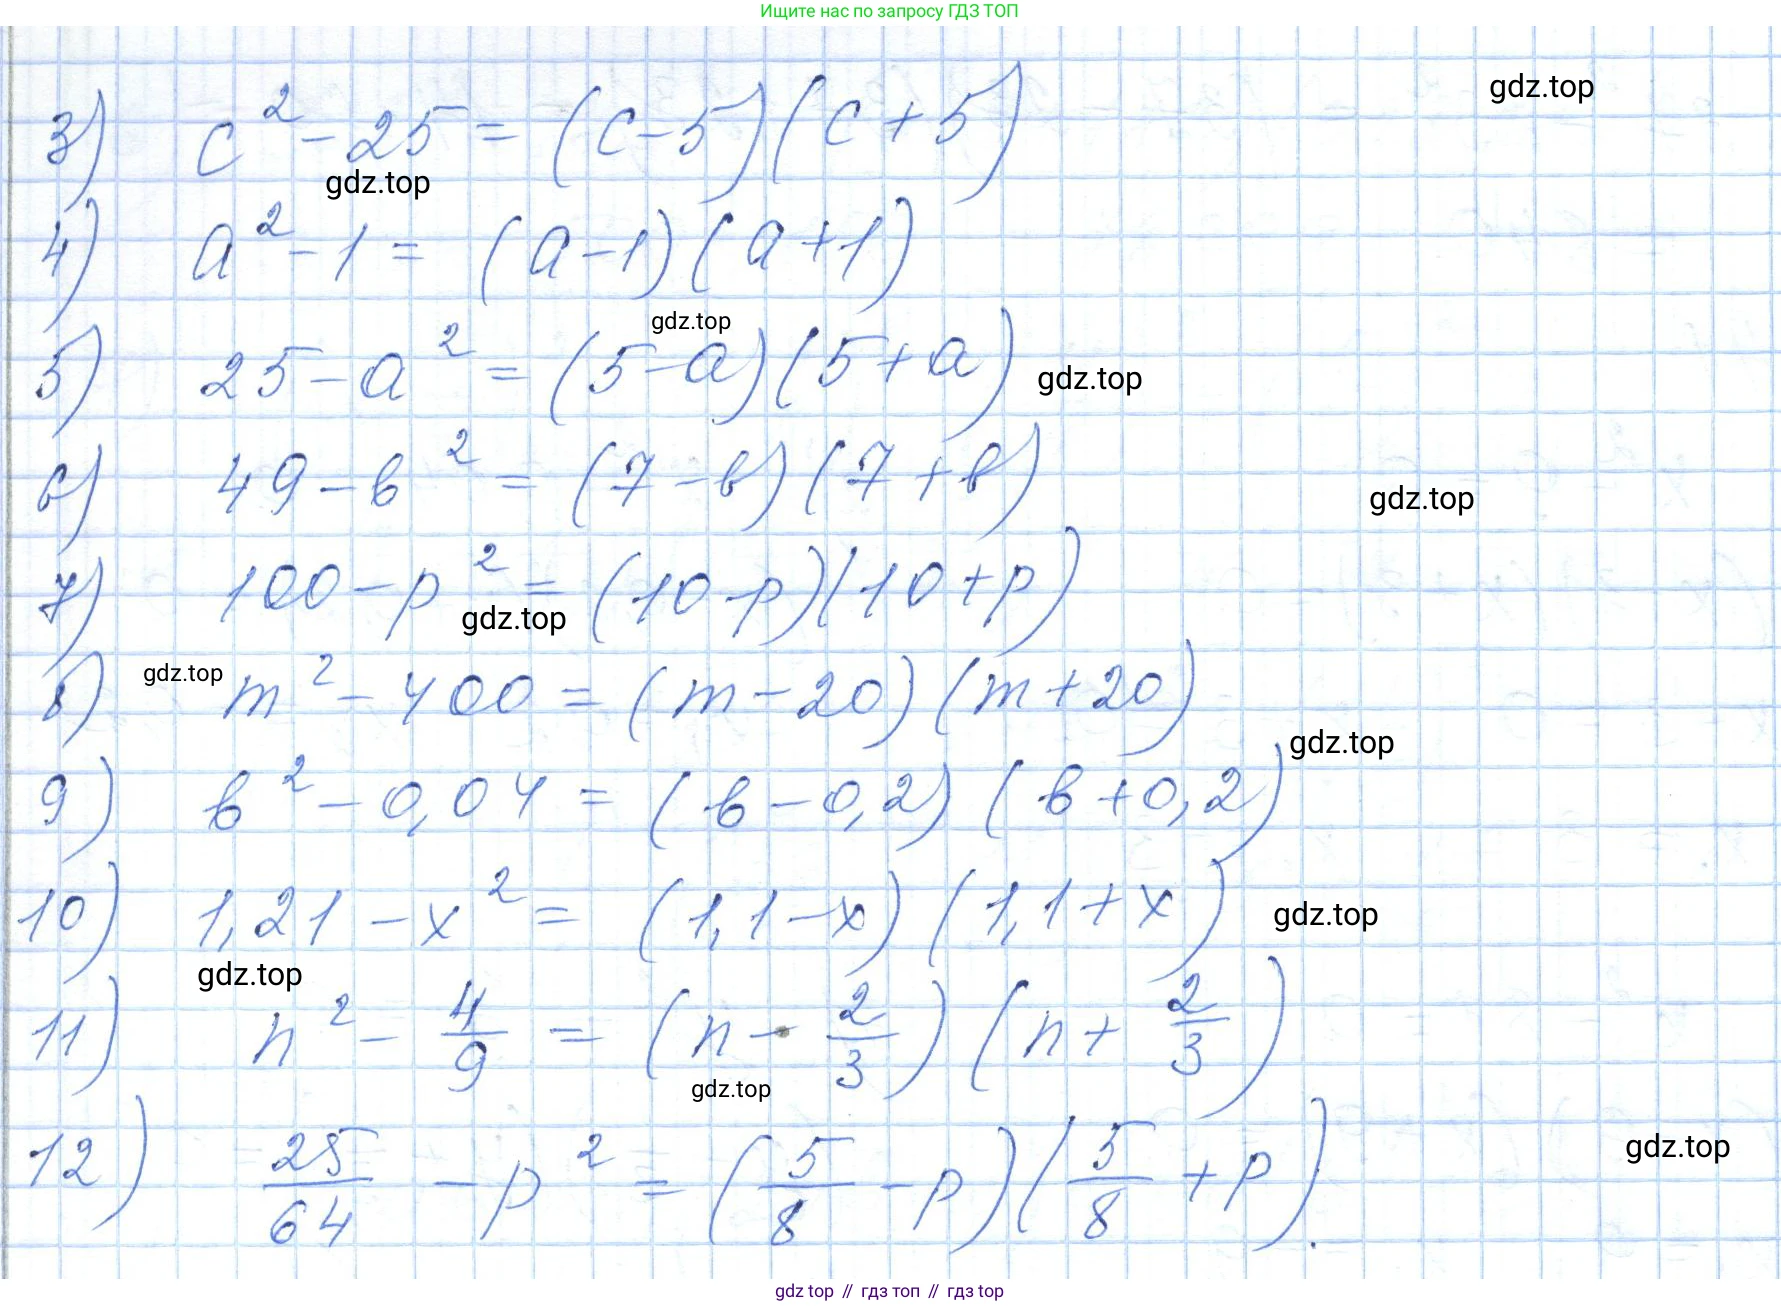 Ищите нас по запросу ГДЗ ТОП
gdz.top
3) c² - 25 = (c - 5)(c + 5)
gdz.top
4) a² - 1 = (a - 1)(a + 1)
gdz.top
5) 25 - a² = (5 - a)(5 + a)
gdz.top
6) 49 - b² = (7 - b)(7 + b)
gdz.top
7) 100 - p² = (10 - p)(10 + p)
gdz.top
gdz.top
8) m² - 400 = (m - 20)(m + 20)
gdz.top
9) b² - 0,04 = (b - 0,2)(b + 0,2)
10) 1,21 - x² = (1,1 - x)(1,1 + x)
gdz.top
gdz.top
11) n² - 4/9 = (n - 2/3)(n + 2/3)
gdz.top
12) 25/64 - p² = (5/8 - p)(5/8 + p).
gdz.top
gdz top // гдз топ // гдз top